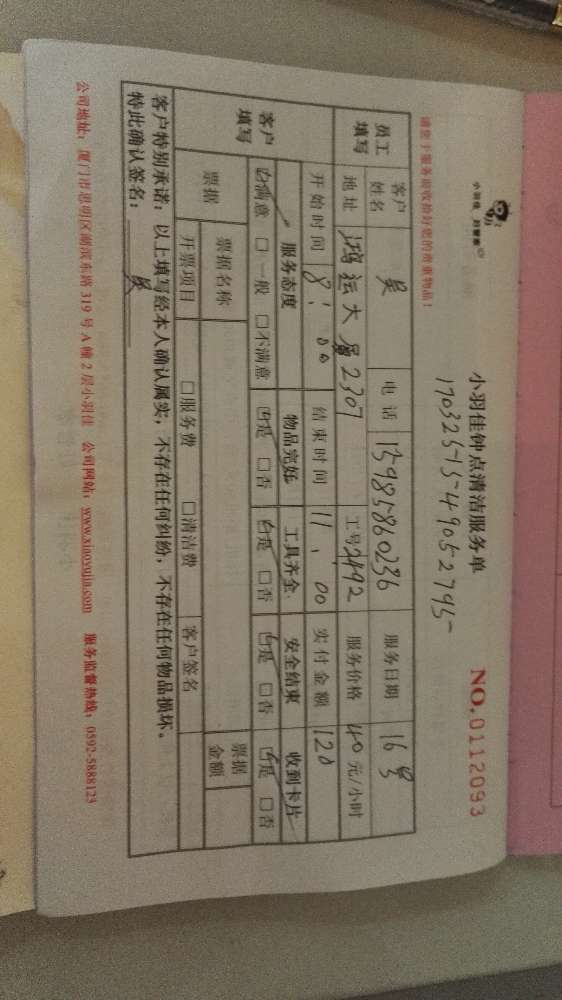 小羽佳 好管家
小羽佳钟点清洁服务单
NO.0112093
1703251549052795
请您于服务前收拾好您的贵重物品！
员工填写 客户姓名 吴 电话 13985860236 服务日期 16号
地址 鸿运大厦2307 工号 2492 服务价格 40元/小时
开始时间 8:00 结束时间 11:00 实付金额 120
客户填写 服务态度 物品完好 工具齐全 安全结束 收到卡片
☑满意 □一般 □不满意 ☑是 □否 ☑是 □否 ☑是 □否 ☑是 □否
票据 票据名称 票据金额
开票项目 □服务费 □清洁费 客户签名
客户特别承诺：以上填写经本人确认属实，不存在任何纠纷，不存在任何物品损坏。
特此确认签名：吴
公司地址：厦门市思明区湖滨东路319号A幢2层小羽佳 公司网站：www.xiaoyujia.com 服务监督热线：0592-5888123